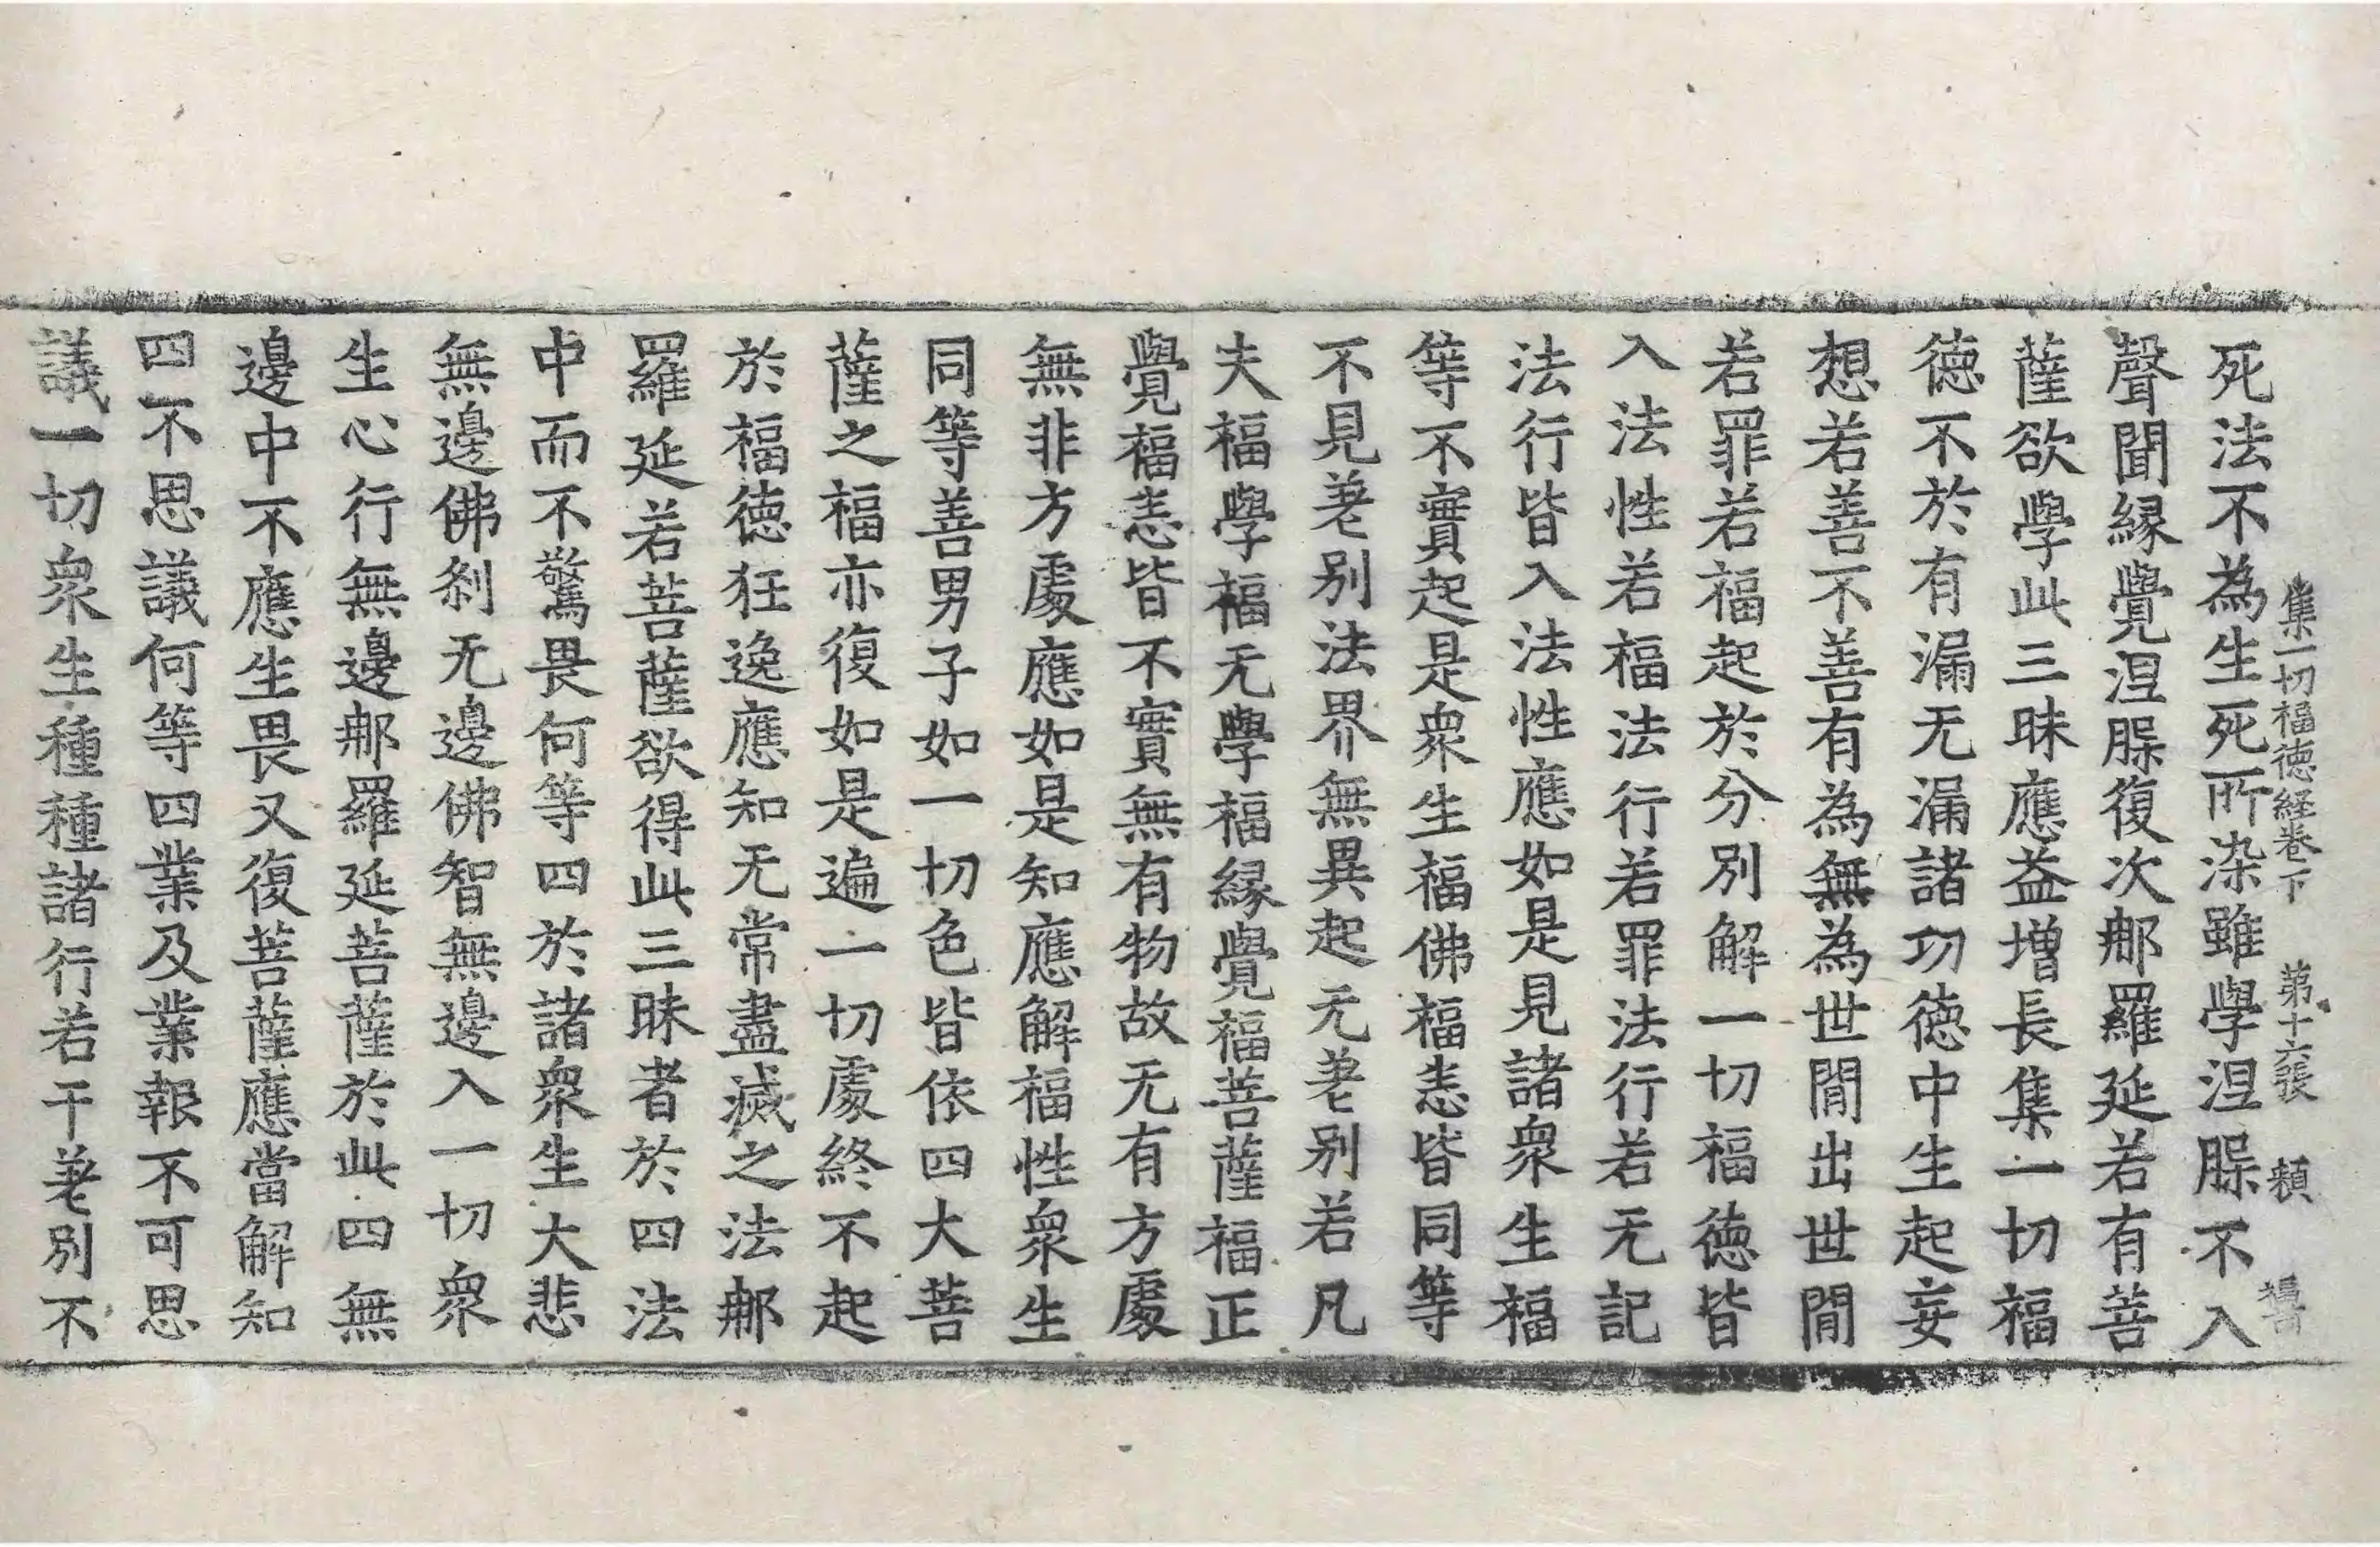 集一切福徳経卷下 第十六張 頼
死法不為生死所染雖學涅䏶不入
聲聞縁覺涅䏶復次郍羅延若有菩
薩欲學此三昧應益增長集一切福
徳不於有漏无漏諸功徳中生起妄
想若善不善有為無為世閒出世閒
若罪若福起於分別解一切福徳皆
入法性若福法行若罪法行若无記
法行皆入法性應如是見諸衆生福
等不實起是衆生福佛福悉皆同等
不見差别法界無異起无差别若凡
夫福學福无學福縁覺福菩薩福正
覺福悉皆不實無有物故无有方處
無非方處應如是知應解福性衆生
同等善男子如一切色皆依四大菩
薩之福亦復如是遍一切處終不起
於福徳狂逸應知无常盡滅之法郍
羅延若菩薩欲得此三昧者於四法
中而不驚畏何等四於諸衆生大悲
無邊佛刹无邊佛智無邊入一切衆
生心行無邊郍羅延菩薩於此四無
邊中不應生畏又復菩薩應當解知
四不思議何等四業及業報不可思
議一切衆生種種諸行若干差别不